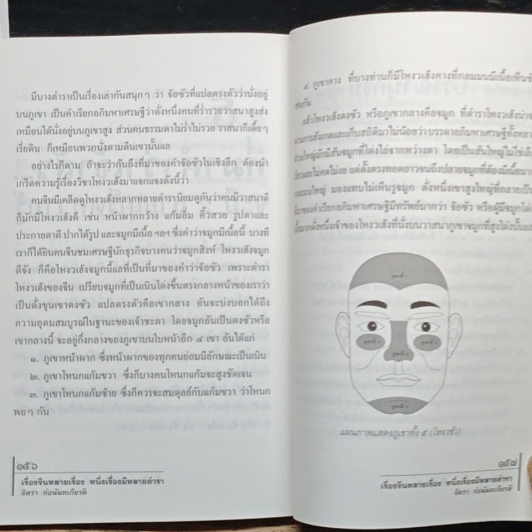 มีบางตำราเป็นเรื่องเล่ากันสนุกๆ ว่า จ้อซัวที่แปลตรงตัวว่านั่งอยู่
บนภูเขา เรียกอภิมหาเศรษฐีว่าดั่งหนึ่งคนที่ร่ำรวยวาสนาสูงส่ง
เหมือนได้นั่งอยู่บนภูเขาสูง ส่วนคนธรรมดาไม่ร่ำไม่รวย วาสนาก็เตี้ยๆ
เรี่ยดิน ก็เหมือนพวกนั่งตามตีนเขาเนินแล
อย่างไรก็ตาม ถ้าจะว่ากันถึงที่มาของคำจ้อซัวในเชิงลึก ต้องนำ
เกร็ดความรู้เรื่องวิชาโหงวเฮ้งมาแจกแจงดังนี้ว่า
คนจีนมีเคล็ดดูโหงวเฮ้งหลากหลายตำรานิยมดูกันว่าคนมีวาสนาดี
ก็มักมีโหงวเฮ้งดี เช่น หน้าผากกว้าง แก้มอิ่ม คิ้วสวย รูปตาและ
ประกายตาดี ปากได้รูป และจมูกมีเนื้อ ฯลฯ ซึ่งคำว่าจมูกมีเนื้อนี้ บางที
เราก็ได้ยินคนจีนชมเศรษฐีนักธุรกิจบางคนว่าจมูกสิงห์ โหงวเฮ้งจมูก
ดีจัง ก็คือโหงวเฮ้งจมูกนี้แลที่เป็นที่มาของคำว่าจ้อซัว เพราะตำรา
โหงวเฮ้งของจีน เปรียบจมูกที่เป็นเนินโด่งขึ้นตรงกลางหน้าของเราว่า
เป็นดั่งขุนเขาตงซัว แปลตรงตัวคือเขากลาง อันจะบ่งบอกได้ถึง
ความอุดมสมบูรณ์ในฐานะของเจ้าชะตา โดยจมูกอันเป็นตงซัวหรือ
เขากลางนี้ จะอยู่กึ่งกลางของภูเขาบนใบหน้าอีก ๔ เขา อันได้แก่
๑. ภูเขาหน้าผาก ซึ่งหน้าผากของทุกคนย่อมมีลักษณะเป็นเนิน
๒. ภูเขาโหนกแก้มขวา ซึ่งก็บางคนโหนกแก้มจะสูงชัดเจน
๓. ภูเขาโหนกแก้มซ้าย ซึ่งก็ควรจะสมดุลย์กับแก้มขวา ว่าโหนก
พอๆ กัน
๑๕๖
เรื่องจีนหลายเรื่อง หนึ่งเรื่องมีหลายตำรา
จิตรา ก่อนันทเกียรติ
๔. ภูเขาคาง ที่บางท่านก็มีโหงวเฮ้งคางที่กลมมนมีเนื้อเห็นชัด
เช่นกัน
แล้วโหงวเฮ้งตงซัว หรือภูเขากลางคือจมูก ที่ตำราโหงวเฮ้งน่าจะ
ผ่านการสังเกตและเก็บสถิติมาไม่น้อยว่าบรรดาอภิมหาเศรษฐีจีน
แผนภาพแสดงภูเขาทั้ง ๕ (โหงวซัว)
๑๕๗
เรื่องจีนหลายเรื่อง หนึ่งเรื่องมีหลายตำรา
จิตรา ก่อนันทเกียรติ